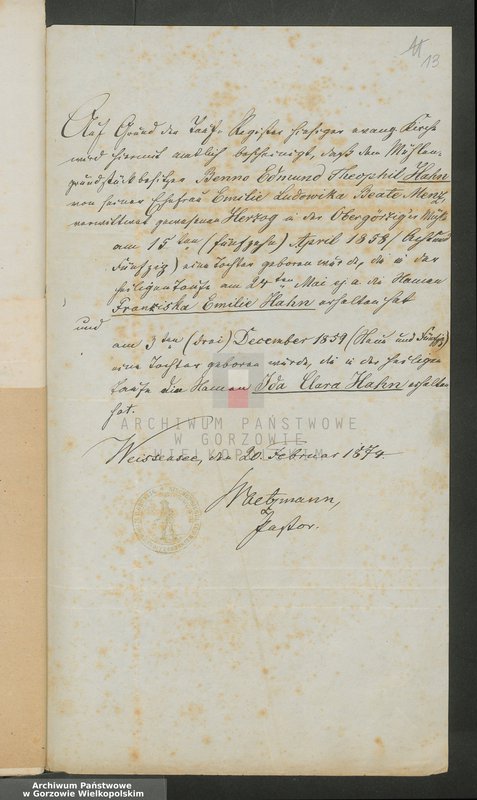 11
13
Auf Grund der Tauf-Register hiesiger evang. Kirche
wird hiermit amtlich bescheinigt, daß dem Mühlen-
grundstückbesitzer Benno Edmund Theophil Hahn
von seiner Ehefrau Emilie Ludowika Beate Menz,
verwittwet gewesenen Herzog in der Obergörziger Mühle
am 15ten (fünfzehn) April 1858 (Acht und
Fünfzig) eine Tochter geboren wurde, die in der
heiligen Taufe am 24ten Mai ej. a. die Namen
Franziska Emilie Hahn erhalten hat
und
am 3ten (drei) December 1859 (Neun und Fünfzig)
eine Tochter geboren wurde, die in der heiligen
Taufe die Namen Ida Clara Hahn erhalten
hat.
Weissensee, den 20. Februar 1874
Waetzmann,
Pastor.
ARCHIWUM PAŃSTWOWE
W GORZOWIE
WIELKOPOLSKIM
Archiwum Państwowe
w Gorzowie Wielkopolskim